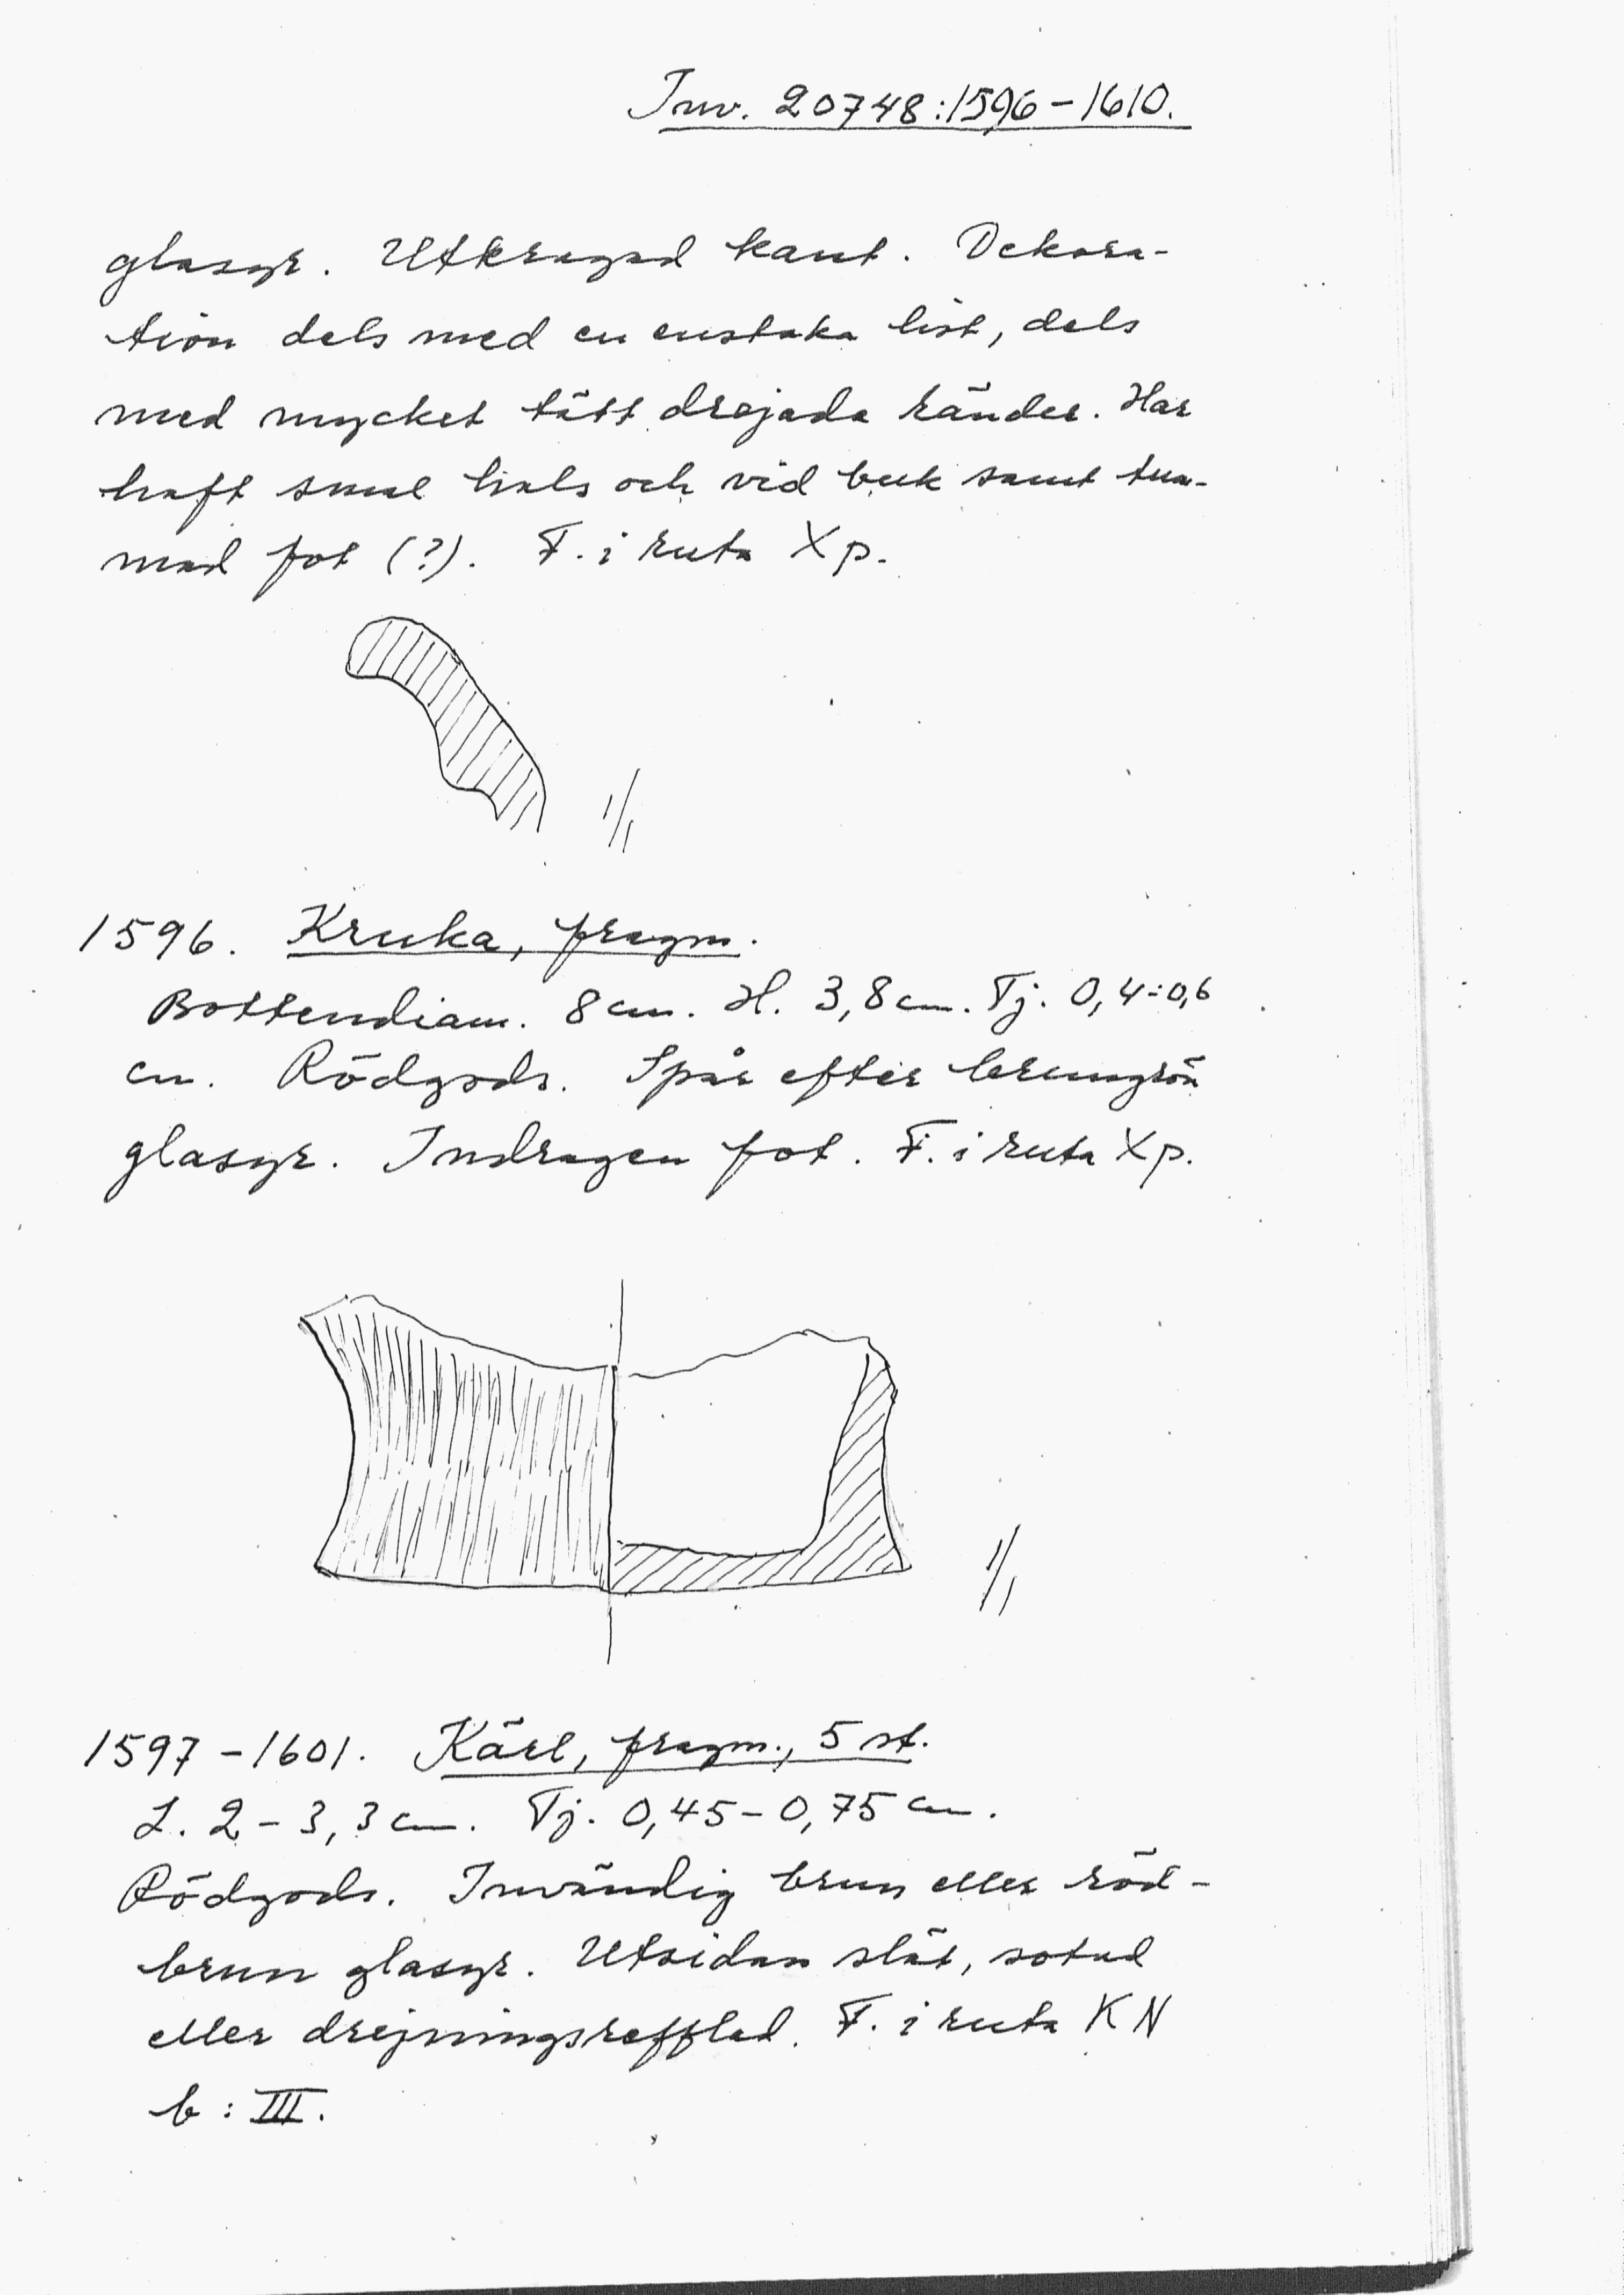 Inv. 20748:1596-1610.
glasyr. Utkragad kant. Dekora-
tion dels med en enstaka list, dels
med mycket tätt drejada ränder. Har
haft smal hals och vid buk samt tum-
mad fot (?). F. i ruta Xp.
1/1
1596. Kruka, fragm.
Bottendiam. 8 cm. H. 3,8 cm. Tj. 0,4-0,6
cm. Rödgods. Spår efter brungrön
glasyr. Indragen fot. F. i ruta Xp.
1/1
1597-1601. Kärl, fragm., 5 st.
L. 2-3,3 cm. Tj. 0,45-0,75 cm.
Rödgods. Invändig brun eller röd-
brun glasyr. Utsidan slät, sotad
eller drejningsrefflad. F. i ruta KN
b: III.